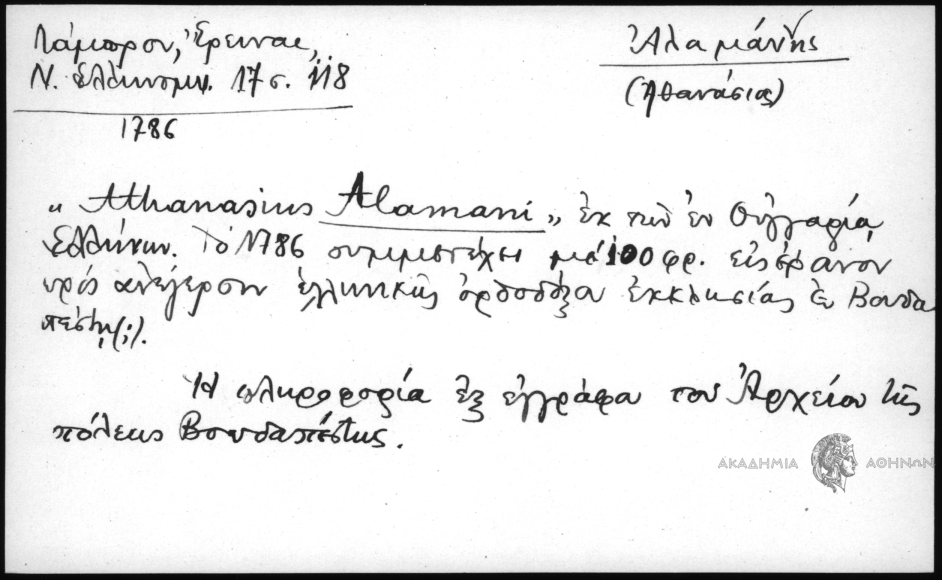 Λάμπρου, Ἔρευναι,
Ν. Ἑλληνομν. 17 σ. 118
1786
Ἀλαμάνης
(Ἀθανάσιος)
"Athanasius Alamani" ἐκ τῶν ἐν Οὑγγαρίᾳ
Ἑλλήνων. Τὸ 1786 συμμετέχει μὲ 100 φρ. εἰς ἔρανον
πρὸς ἀνέγερσιν ἑλληνικῆς ὀρθοδόξου ἐκκλησίας ἐν Βουδα
πέστῃ (;).
Ἡ πληροφορία ἐξ ἐγγράφου τοῦ Ἀρχείου τῆς
πόλεως Βουδαπέστης.
ΑΚΑΔΗΜΙΑ ΑΘΗΝΩΝ